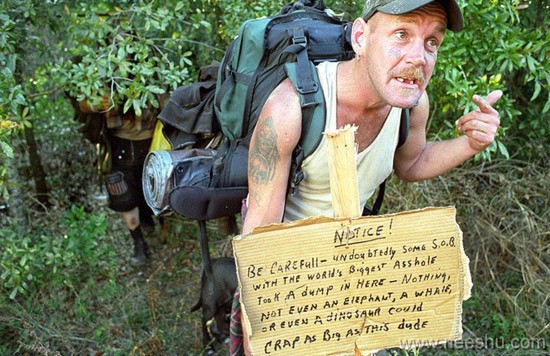 NOTICE!
BE CAREFull - UNDOUBTEDLY SOME S.O.B.
WITH THE WORLD'S BIGGEST ASSHOLE
TOOK A DUMP IN HERE - NOTHING,
NOT EVEN AN ELEPHANT, A WHALE,
OR EVEN A DINOSAUR COULD
CRAP AS BIG AS THIS DUDE
www.neeshu.com